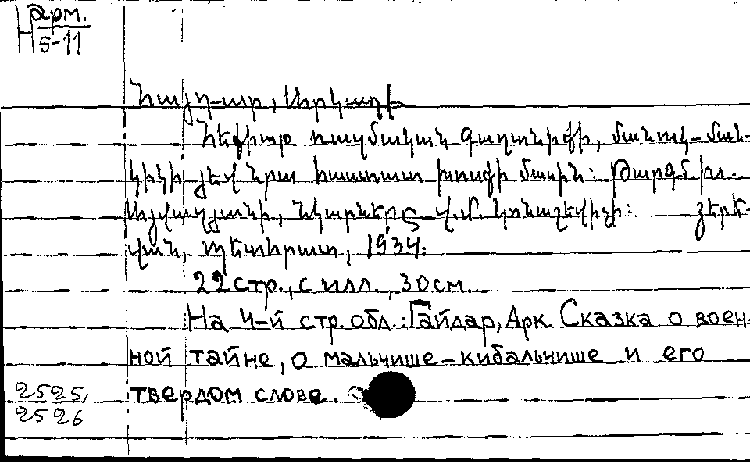 Н арм.
5-11
Հայդար, Արկադի
Հեքիաթ ռազմական գաղտնիքի, մանուկ-ման-
կիկի յեվ նրա հաստատ խոսքի մասին: Թարգմ. Խ.
նկարներ Վ. Մ. Կոնաշեվիչի: Յերե-
վան, պետհրատ, 1934.
22 стр., с илл., 30 см.
На 4-й стр. обл.: Гайдар, Арк. Сказка о воен-
ной тайне, о мальчише-кибальчише и его
твердом слове.
2525,
2526